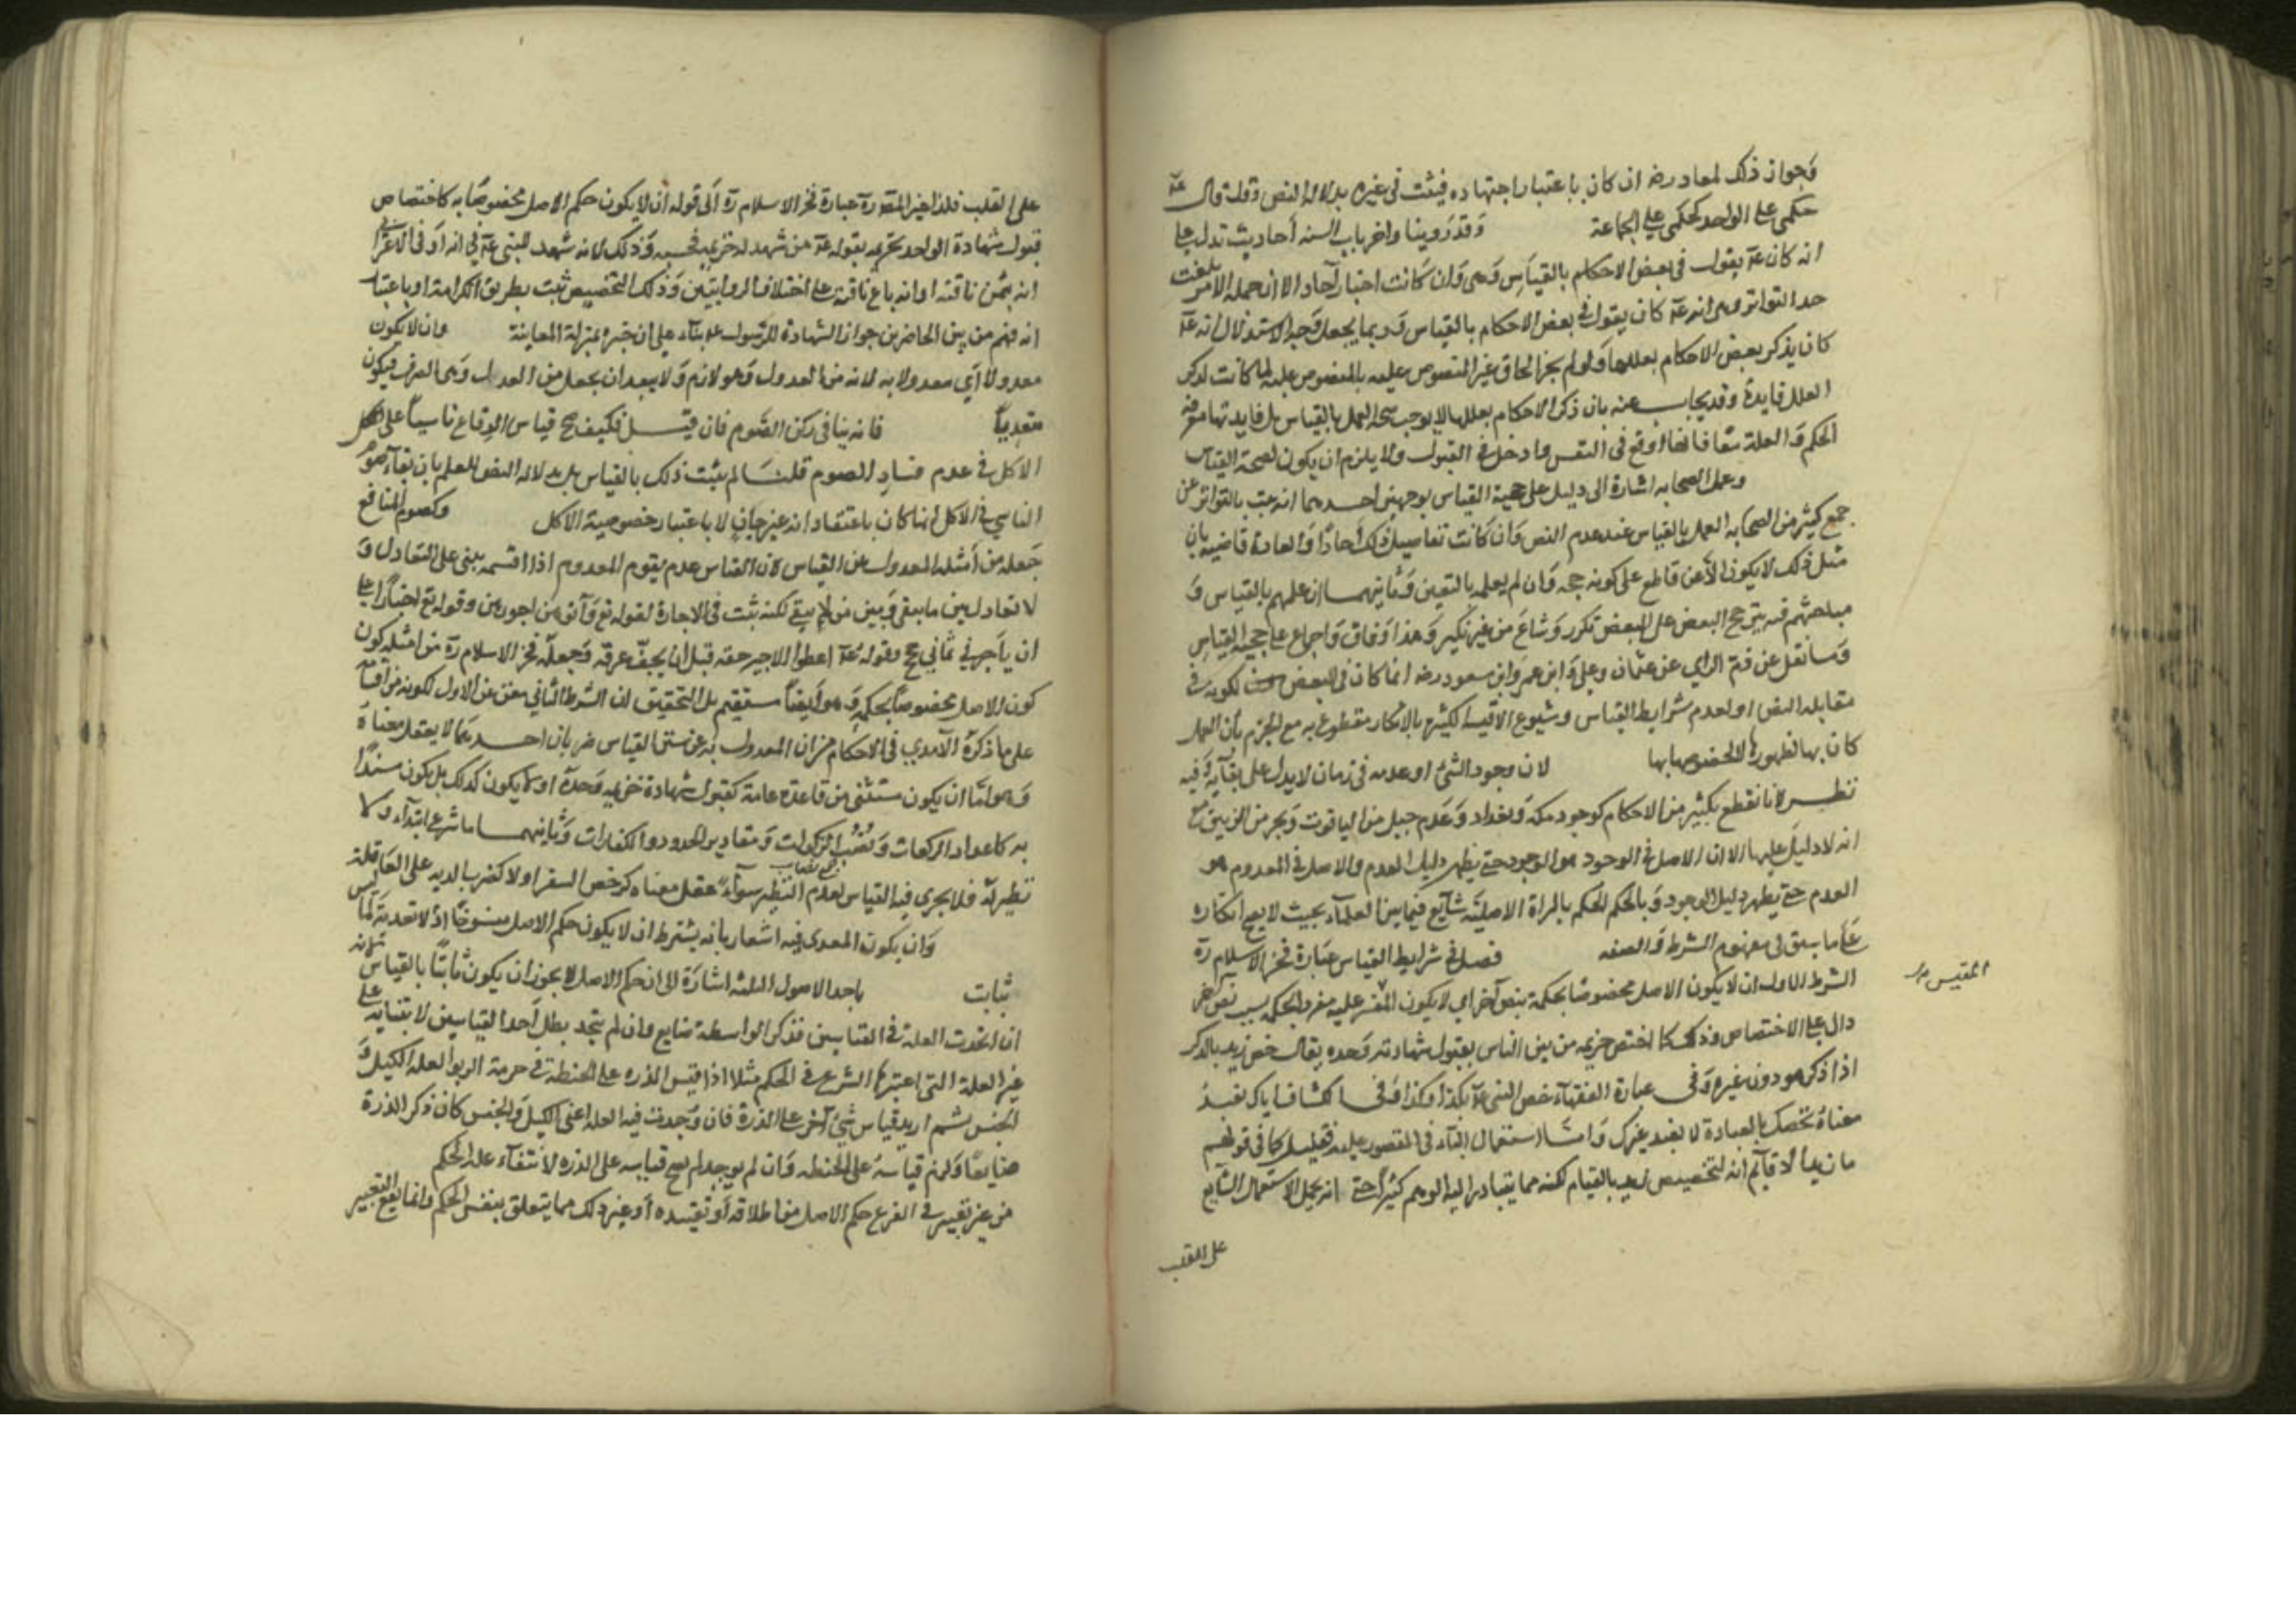 وجواز ذلك لمعاد رضه ان كان باعتبار اجتهاده فيثبت فى غيره بدلالة النص وقلت قال عه
حكمى على الواحد كحكمى على الجماعة وقد روينا واخر باب السنه أحاديث تدل على
انه كان عه يقول فى بعض الاحكام بالقياس وهى وان كانت اخبار آحاد الا ان جملة الامر بلغت
حد التواتر وهى انه عه كان يقول فى بعض الاحكام بالقياس وربما يجعل وجه الاستدلال انه عه
كان يذكر بعض الاحكام بعللها ولو لم يجز الحاق غير المنصوص عليه بالمنصوص عليه لما كانت لذكر
العلل فايدة وقد يجاب عنه بان ذكر الاحكام بعللها لا يوجب صحة العمل بالقياس بل فايدتها معرفة
الحكم والعلة معا فانها اوقع فى النفس وادخل فى القبول ولا يلزم ان يكون لصحة القياس
وعمل الصحابه اشارة الى دليل على حجية القياس بوجهين احدهما انه ثبت بالتواتر عن
جمع كثير من الصحابه العمل بالقياس عند عدم النص وان كانت تفاصيل ذلك آحادًا والعادة قاضيه بان
مثل ذلك لا يكون الا عن قاطع على كونه حجه وان لم يعلمه بالتعيين وثانيهما ان عملهم بالقياس و
مباحثتهم فيه بترجيح البعض على البعض تكرر وشاع من غير نكير وهذا وفاق واجماع على حجية القياس
وما نقل عن ذم الراي عن عثمان وعلى وابن عمر وابن مسعود رضه انما كان فى البعض لكونه فى
مقابلة النص او لعدم شرايط القياس وشيوع الاقيسة الكثيره بلا انكار مقطوع به مع الجزم بان العمل
كان بها لظهورها لا لخصوصها بها لان وجود الشئ او عدمه فى زمان لا يدل على بقآيه وفيه
نظر لانا نقطع بكثير من الاحكام كوجود مكه وبغداد وعدم جبل من الياقوت وبحر من الزيبق مع
انه لا دليل عليها الا ان الاصل فى الوجود هو الوجود حتى يظهر دليل العدم والاصل فى المعدوم هو
العدم حتى يظهر دليل الوجود وبالحكم الحكم بالبراة الاصلية شآيع فيما بين العلمآء بحيث لا يصح انكاره
على ما سبق فى مفهوم الشرط والصفه فصل فى شرايط القياس عبارة فخر الاسلام ره
الشرط الاول ان لا يكون الاصل مخصوصا بحكمه بنص آخر اي لا يكون المقيس عليه منفردا بحكمه بسبب نص آخر
المقيس
دال على الاختصاص وذلك كما اختص خزيمه من بين الناس بقبول شهادته وحده يقال خص زيد بالذكر
اذا ذكر هو دون غيره وفى عبارة الفقهآء خص النبى عه بكذا وكذا وفى الكشاف اياك نعبدُ
معناه نخصك بالعبادة لا نعبد غيرك وامـــا استعمال البآء فى المقصور عليه فقليل كما فى قولهم
ما زيد الا قآيم انه لتخصيص زيد بالقيام لكنه مما يتبادر اليه الوهم كثيرا حتى انه يحمل الاستعمال الشايع
على القلب
على القلب فلذا غير المص ره عبارة فخر الاسلام ره الى قوله ان لا يكون حكم الاصل مخصوصا به كاختصاص
قبول شهادة الواحد بخزيمه بقوله عه من شهد له خزيمه فحسبه وذلك لانه شهد للنبى عه فى انه اوفى الاعرابى
ثمن ناقته او انه باع ناقته على اختلاف الروايتين وذلك التخصيص ثبت بطريق الكرامة او باعتبار
انه فهم من بين الحاضرين جواز الشهادة للرسول عه بنآء على ان خبره بمنزلة المعاينة وان لا يكون
معدولا أي معدولا به لانه من العدول وهو لازم ولا يبعد ان يجعل من العدل وهى الصرف فيكون
متعديا فانه ينافى ركن الصوم فان قيل فكيف صح قياس الوقاع ناسيا على
الاكل فى عدم فساد الصوم قلنا لم يثبت ذلك بالقياس بل بدلالة النص للعلم بان بقآء صوم
الناسي فى الاكل انما كان باعتقاد انه غير جانٍ لا باعتبار خصوصية الاكل وكصوم المنافع
جعله من أمثلة المعدول عن القياس لان القياس عدم تقوم المعدوم اذ القسمه تبنى على التعادل و
لا تعادل بين ما يبقى وبين من لا يبقى لكنه ثبت فى الاجارة لقوله تع وآتوهن اجورهن وقوله تع اخبارًا على
ان ياجرني ثماني حجج وقوله عه اعطوا الاجير حقه قبل ان يجف عرقه وجعله فخر الاسلام ره من امثله كون
كون الاصل مخصوصا بحكمه وهو ايضا مستقيم بل التحقيق ان الشرط الثاني مغن عن الاول لكونه من اقسامه
على ما ذكره الآمدي فى الاحكام من ان المعدول به عن سنن القياس ضربان احدهما لا يعقل معناه
وهو اما ان يكون مستثنى من قاعدة عامة كقبول شهادة خزيمه وحده او لا يكون كذلك بل يكون مبتدًا
به كاعداد الركعات ونصب الزكوات ومقادير الحدود والكفارات وثانيهما ما شرع ابتدآء ولا
جمع نصاب
نظير له فلا يجرى فيه القياس لعدم النظير سوآء عقل معناه كرخص السفر او لا كضرب الديه على العاقلة
وان يكون المعدى فيه اشعار بانه يشترط ان لا يكون حكم الاصل منسوخا اذ لا تعدية لما ليس
بثابت باحد الاصول الثلثه اشارة الى ان حكم الاصل لا يجوز ان يكون ثابتًا بالقياس لانه
ان اتحدت العلة فى القياسين فذكر الواسطه ضايع وان لم تتحد بطل أحد القياسين لابتنايه على
غير العلة التى اعتبرها الشرع فى الحكم مثلا اذا قيس الذره على الحنطة فى حرمة الربوا لعلة الكيل و
الجنس ثم اريد قياس شئ آخر على الذرة فان وجدت فيه العلة اعنى الكيل والجنس كان ذكر الذرة
ضايعا ولزم قياسه على الحنطه وان لم يوجد لم يصح قياسه على الذره لانتفآء علة الحكم
من غير تغيير فى الفرع حكم الاصل من اطلاقه أو تقييده أو غير ذلك مما يتعلق بنفس الحكم وانما يقع التغيير